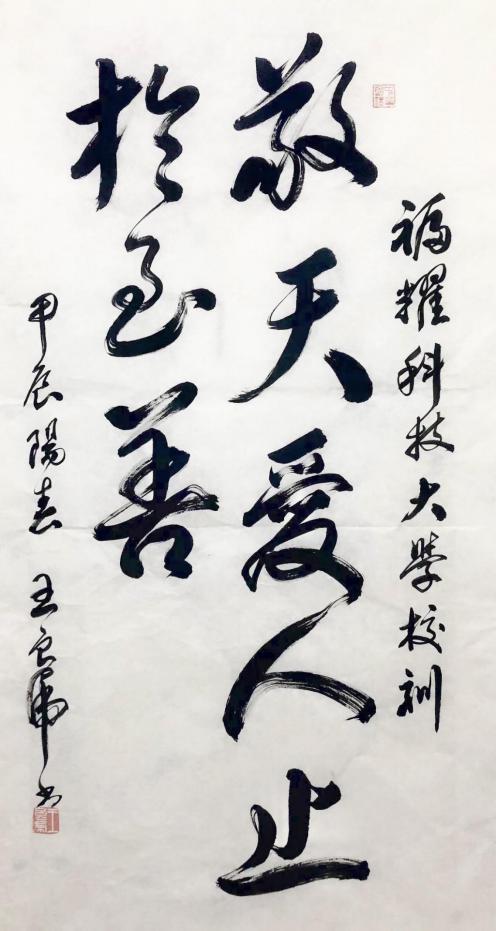 福耀科技大學校訓
敬天愛人止
於至善
甲辰陽春 王良 书